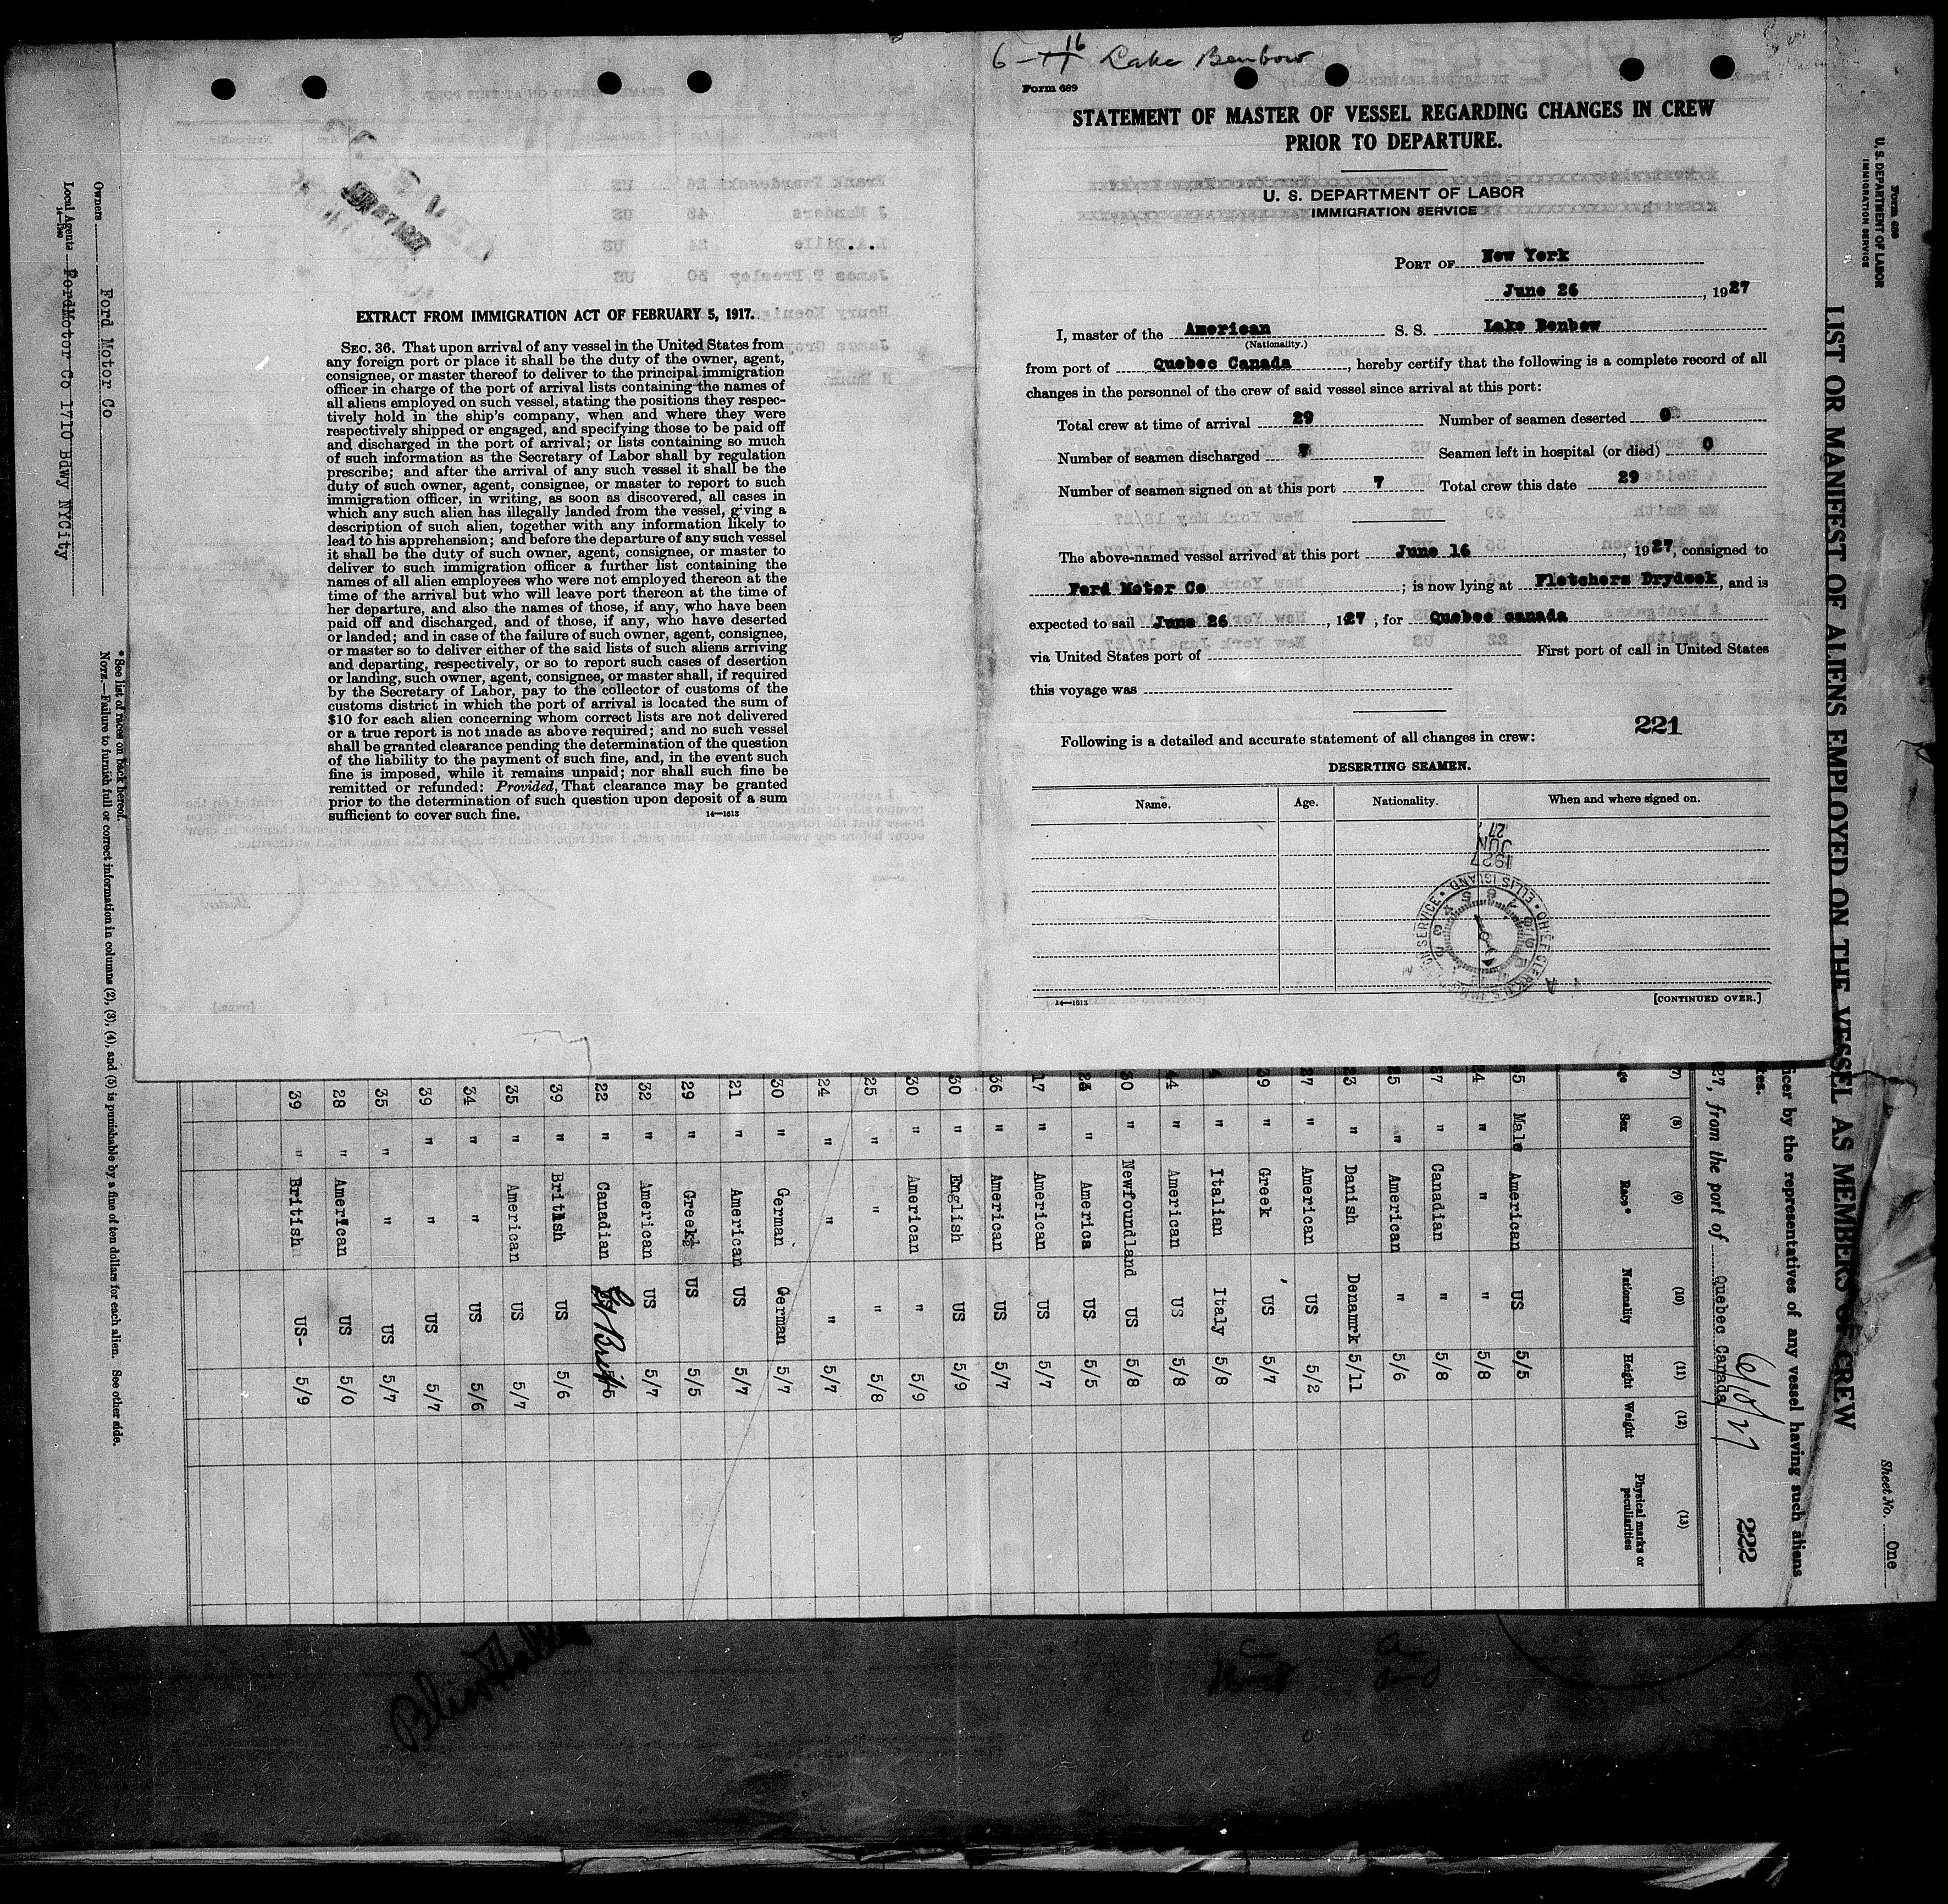 6-11 16 Lake Benbow
Form 689
STATEMENT OF MASTER OF VESSEL REGARDING CHANGES IN CREW
PRIOR TO DEPARTURE.
U. S. DEPARTMENT OF LABOR
IMMIGRATION SERVICE
PORT OF New York
June 26, 1927
I, master of the American S. S. Lake Benbow
(Nationality.)
from port of Quebec Canada, hereby certify that the following is a complete record of all
changes in the personnel of the crew of said vessel since arrival at this port:
Total crew at time of arrival 29 Number of seamen deserted 0
Number of seamen discharged 7 Seamen left in hospital (or died) 0
Number of seamen signed on at this port 7 Total crew this date 29
The above-named vessel arrived at this port June 16, 1927, consigned to
Ford Motor Co; is now lying at Fletchers Drydock, and is
expected to sail June 26, 1927; for Quebec canada
via United States port of First port of call in United States
this voyage was
221
Following is a detailed and accurate statement of all changes in crew:
DESERTING SEAMEN.
Name. Age. Nationality. When and where signed on.
1927 JUN 27
CHIEF CLERK U.S. IMMIGRATION SERVICE • ELLIS ISLAND •
14—1613 [CONTINUED OVER.]
EXTRACT FROM IMMIGRATION ACT OF FEBRUARY 5, 1917.
SEC. 36. That upon arrival of any vessel in the United States from
any foreign port or place it shall be the duty of the owner, agent,
consignee, or master thereof to deliver to the principal immigration
officer in charge of the port of arrival lists containing the names of
all aliens employed on such vessel, stating the positions they respec-
tively hold in the ship's company, when and where they were
respectively shipped or engaged, and specifying those to be paid off
and discharged in the port of arrival; or lists containing so much
of such information as the Secretary of Labor shall by regulation
prescribe; and after the arrival of any such vessel it shall be the
duty of such owner, agent, consignee, or master to report to such
immigration officer, in writing, as soon as discovered, all cases in
which any such alien has illegally landed from the vessel, giving a
description of such alien, together with any information likely to
lead to his apprehension; and before the departure of any such vessel
it shall be the duty of such owner, agent, consignee, or master to
deliver to such immigration officer a further list containing the
names of all alien employees who were not employed thereon at the
time of the arrival but who will leave port thereon at the time of
her departure, and also the names of those, if any, who have been
paid off and discharged, and of those, if any, who have deserted
or landed; and in case of the failure of such owner, agent, consignee,
or master so to deliver either of the said lists of such aliens arriving
and departing, respectively, or so to report such cases of desertion
or landing, such owner, agent, consignee, or master shall, if required
by the Secretary of Labor, pay to the collector of customs of the
customs district in which the port of arrival is located the sum of
$10 for each alien concerning whom correct lists are not delivered
or a true report is not made as above required; and no such vessel
shall be granted clearance pending the determination of the question
of the liability to the payment of such fine, and, in the event such
fine is imposed, while it remains unpaid; nor shall such fine be
remitted or refunded: Provided, That clearance may be granted
prior to the determination of such question upon deposit of a sum
sufficient to cover such fine.
14—1613
U. S. DEPARTMENT OF LABOR
IMMIGRATION SERVICE
Sheet No. One
LIST OR MANIFEST OF ALIENS EMPLOYED ON THE VESSEL AS MEMBERS OF CREW
icer by the representatives of any vessel having such aliens
27, from the port of Quebec Canada
6/10/27
222
(7) (8) (9) (10) (11) (12) (13)
ge Sex Race* Nationality Height Weight Physical marks or peculiarities
35 Male American US 5/5
24 " " " 5/8
37 " Canadian " 5/8
25 " American " 5/6
23 " Danish Denamrk 5/11
27 " American US 5/2
39 " Greek US 5/7
" Italian Italy 5/8
44 " American US 5/8
30 " Newfoundland US 5/8
" America US 5/5
17 " American US 5/7
36 " American US 5/7
30 " English US 5/9
30 " American " 5/9
25 " " " 5/8
24 " " " 5/7
30 " German German 5/7
21 " American US 5/7
29 " Greek US 5/5
32 " American US 5/7
22 " Canadian Gt Brit
39 " British US 5/6
35 " American US 5/7
34 " " US 5/6
39 " " US 5/7
35 " " US 5/7
28 " American US 5/0
39 " British US- 5/9
*See list of races on back hereof.
NOTE.—Failure to furnish full or correct information in columns (2), (3), (4), and (5) is punishable by a fine of ten dollars for each alien. See other side.
Owners Ford Motor Co
Local Agents Ford Motor Co 1710 Bdwy NYCity
14—1240